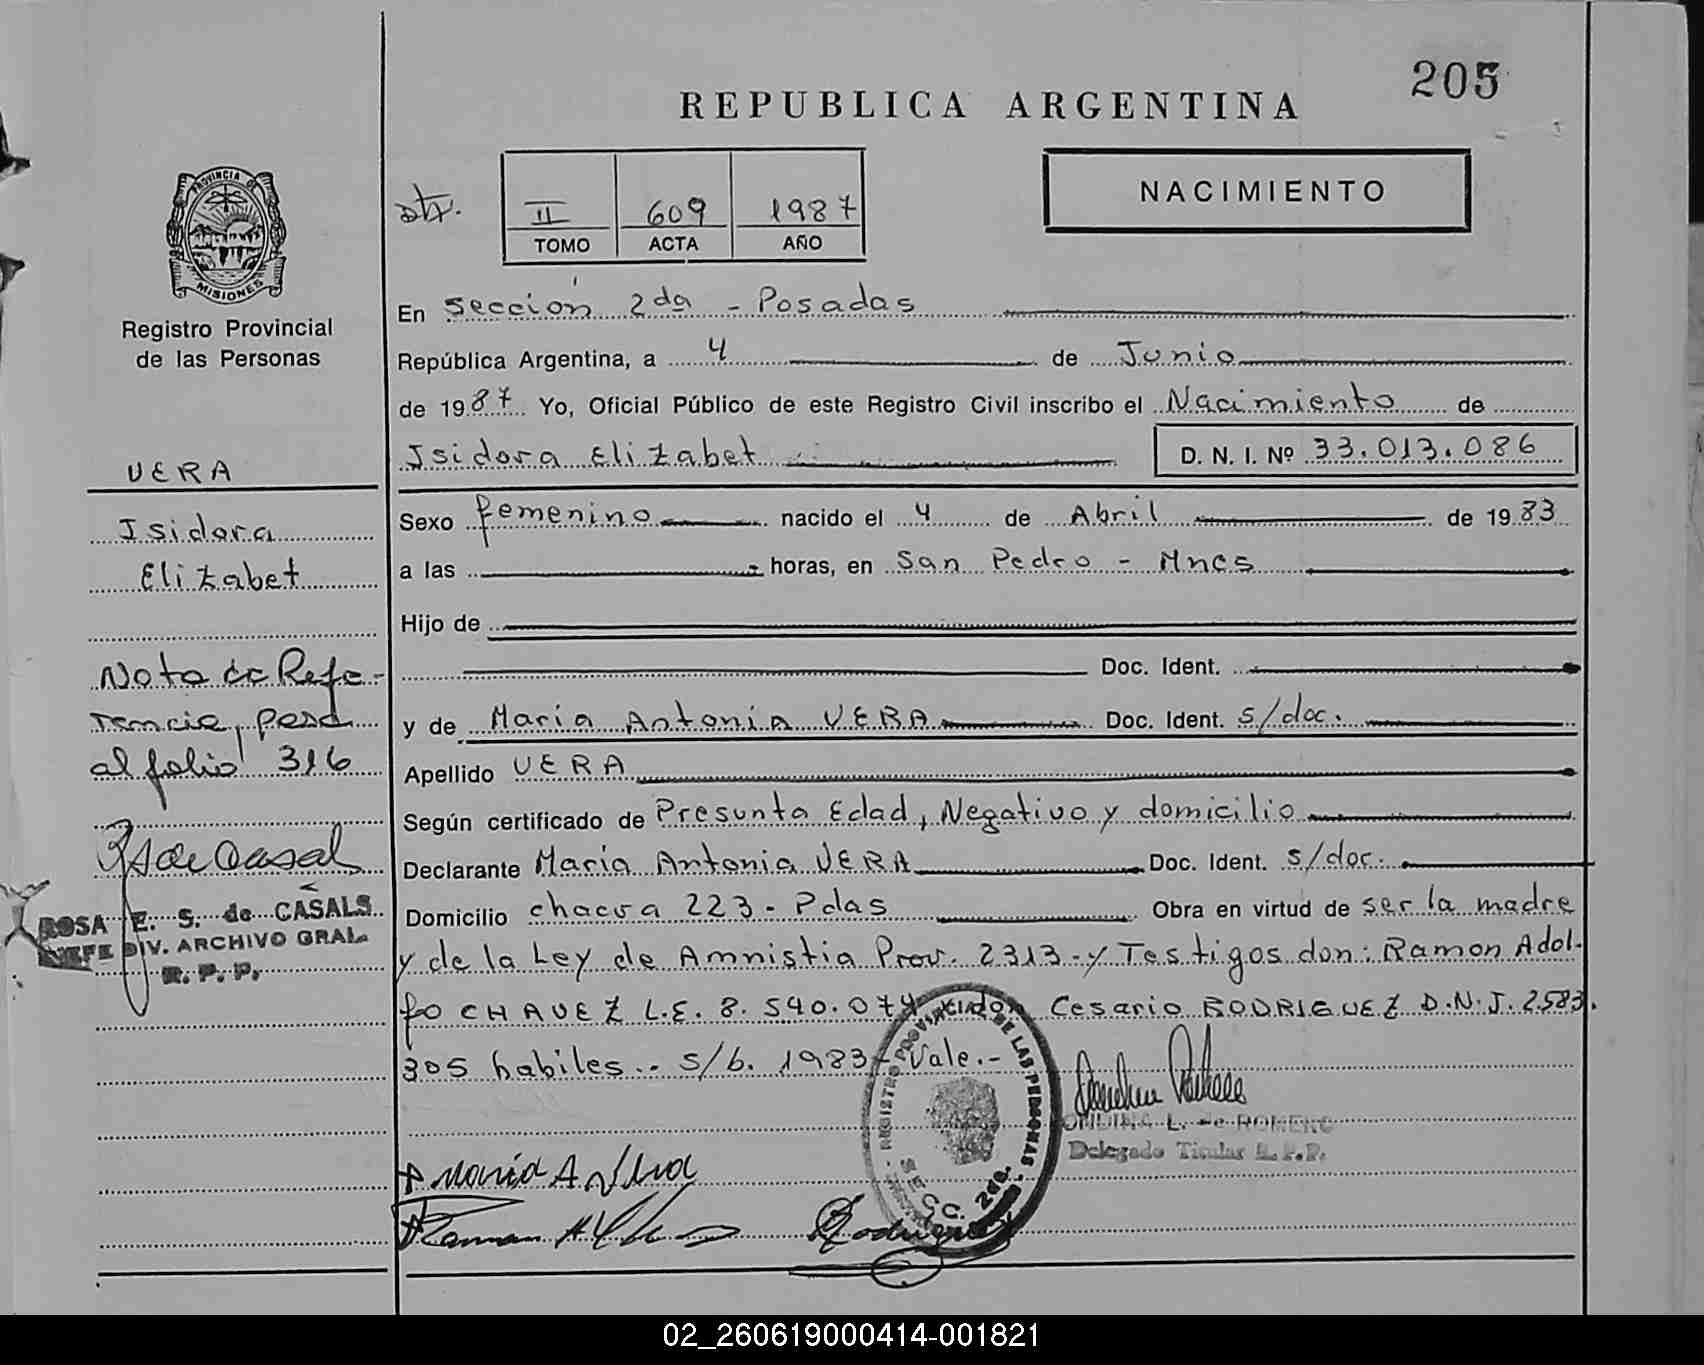 205
REPUBLICA ARGENTINA
PROVINCIA DE
MISIONES
Registro Provincial
de las Personas
II 609 1987
TOMO ACTA AÑO
NACIMIENTO
En Sección 2da - Posadas
República Argentina, a 4 de Junio
de 1987. Yo, Oficial Público de este Registro Civil inscribo el Nacimiento de
Isidora Elizabet D. N. I. Nº 33.013.086
VERA
Isidora
Elizabet
Sexo femenino nacido el 4 de Abril de 1983
a las horas, en San Pedro - Mnes
Hijo de
Doc. Ident.
y de María Antonia VERA Doc. Ident. s/doc.
Apellido VERA
Según certificado de Presunta Edad, Negativo y domicilio
Declarante María Antonia VERA Doc. Ident. s/doc.
Domicilio chacra 223 - Pdas Obra en virtud de ser la madre
y de la Ley de Amnistia Prov. 2313 - y Testigos don: Ramon Adol-
fo CHAVEZ L.E. 8.540.074 y don Cesario RODRIGUEZ D.N.I. 2.583.
305 habiles.. s/b. 1983 - Vale.-
Nota de Refe-
rencia, pasa
al folio 316
ROSA E. S. de CASALS
JEFE DIV. ARCHIVO GRAL.
R. P. P.
REGISTRO PROVINCIAL DE LAS PERSONAS
SECC. 2da.
ONDINA L. de ROMERO
Delegado Titular R. P. P.
María A. Vera
02_260619000414-001821